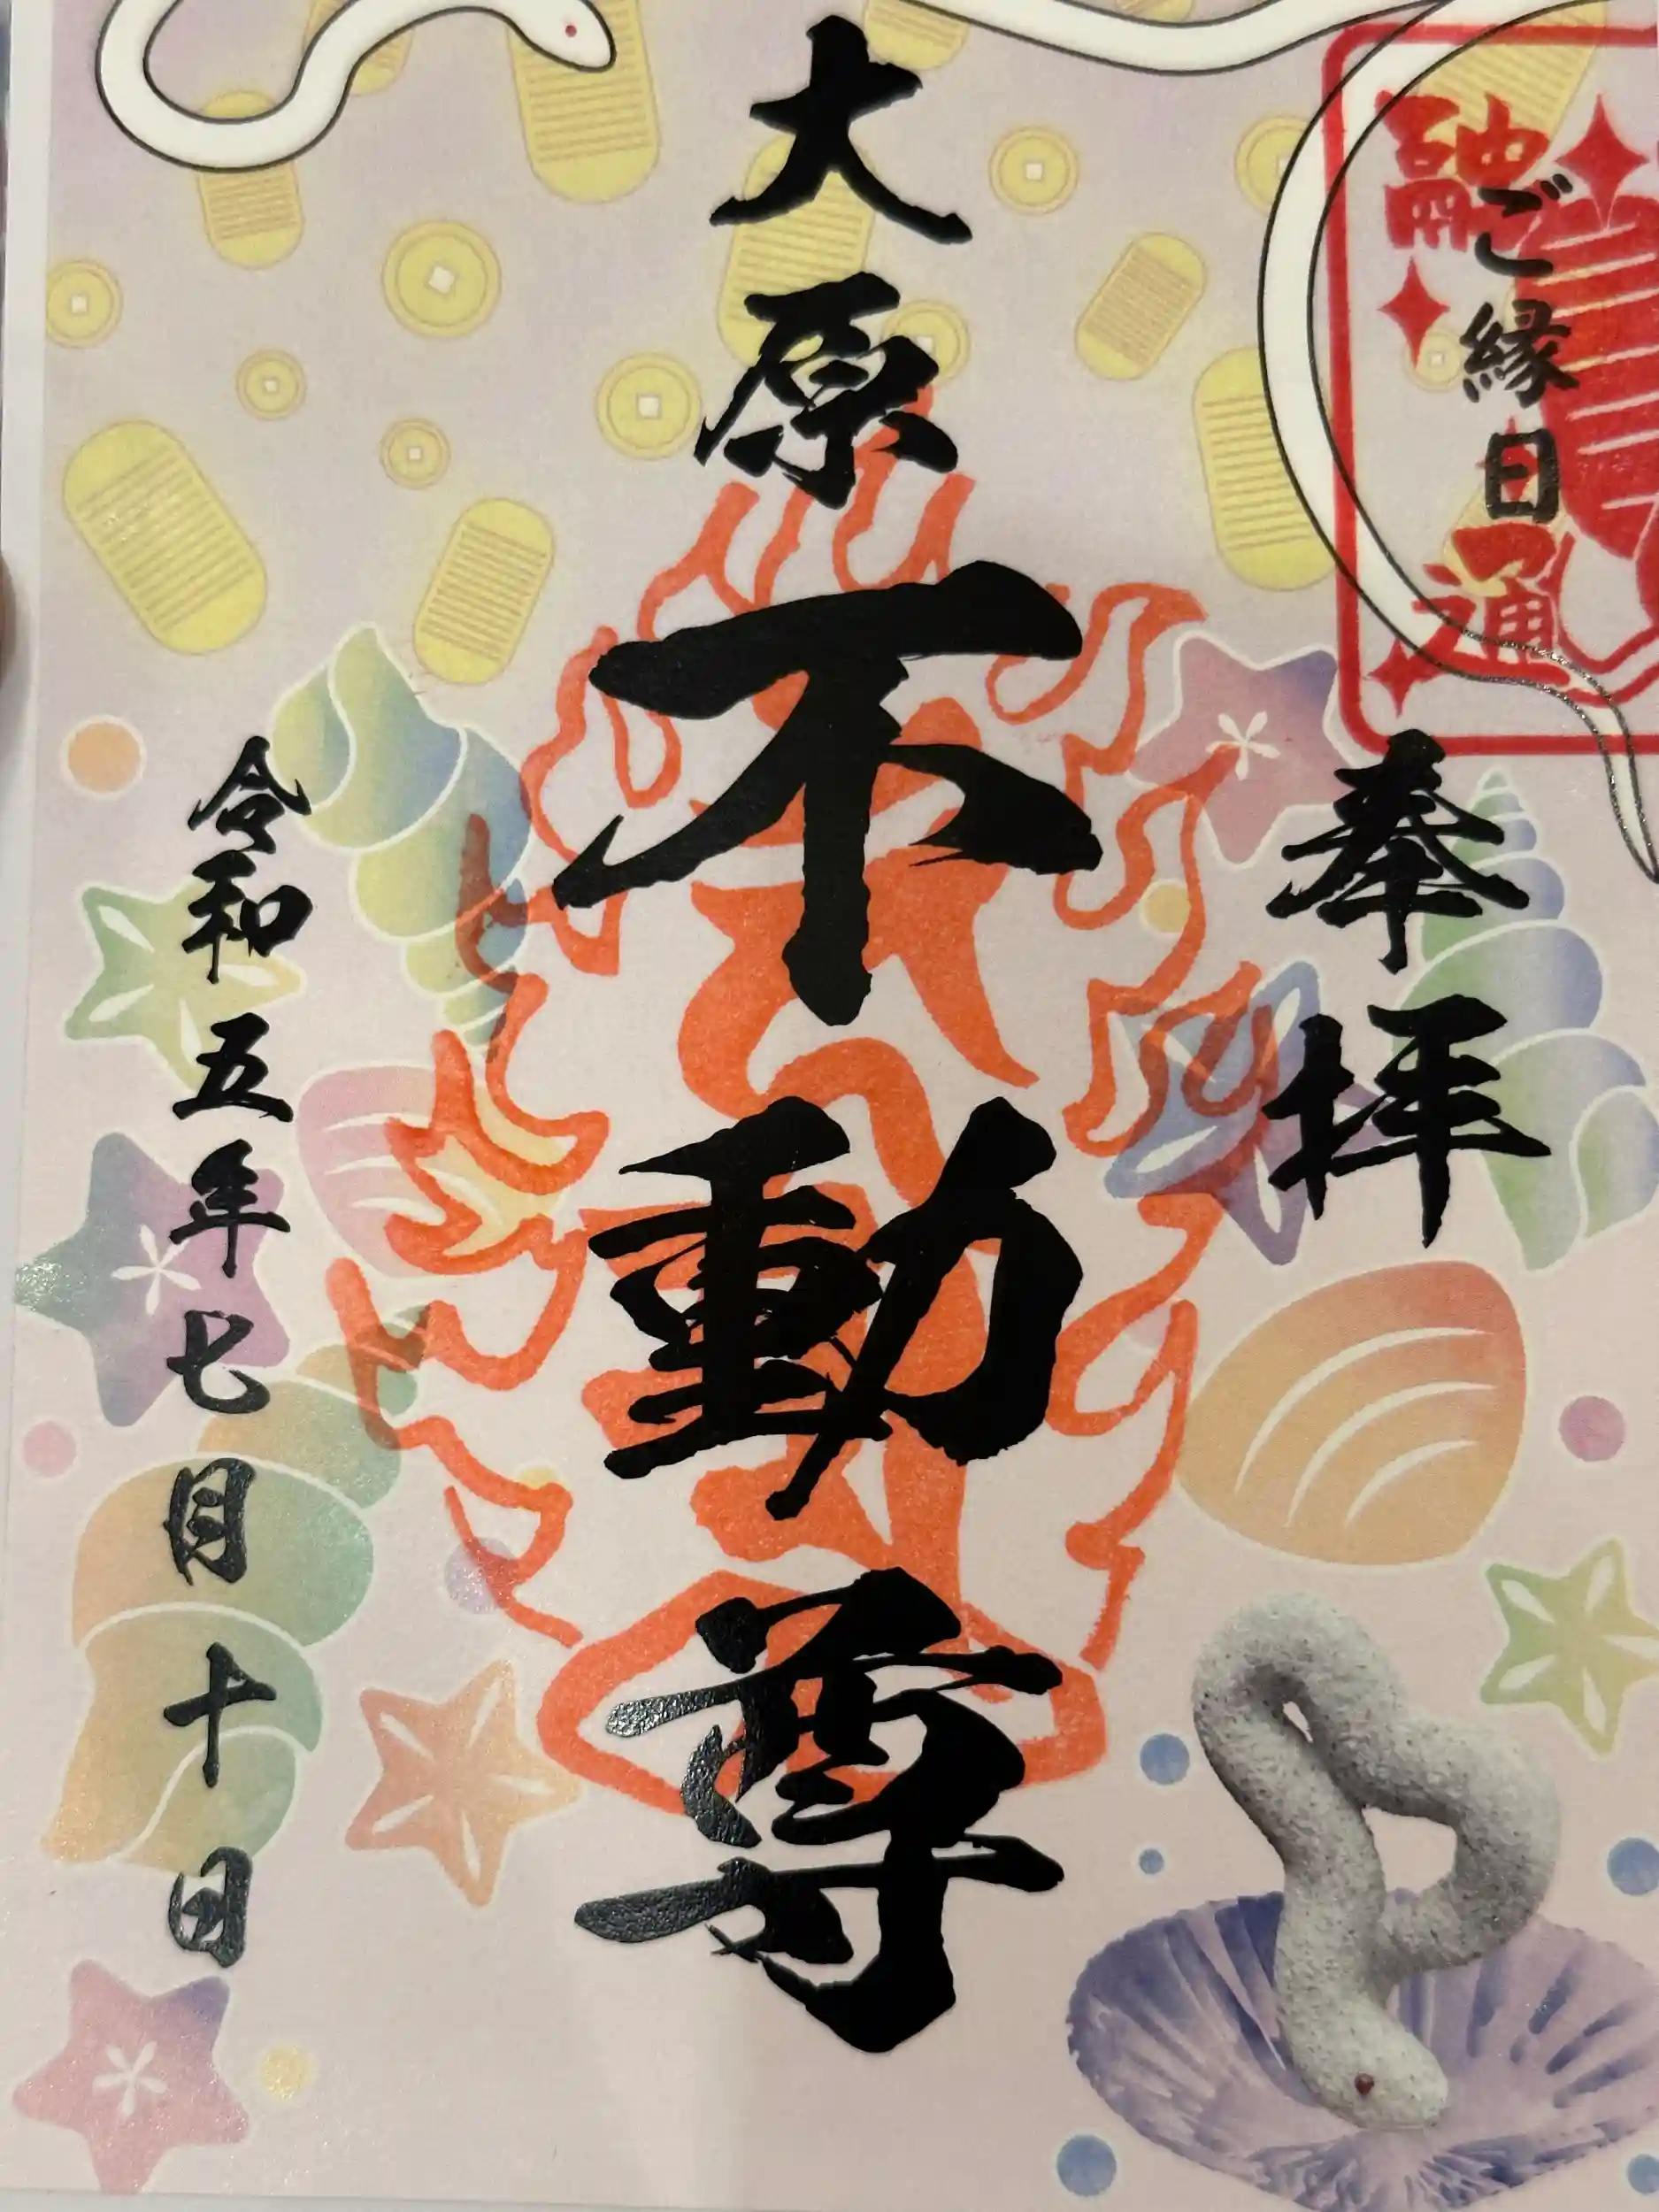 融通
ご縁日
奉拝
大原
不動尊
令和五年七月十日